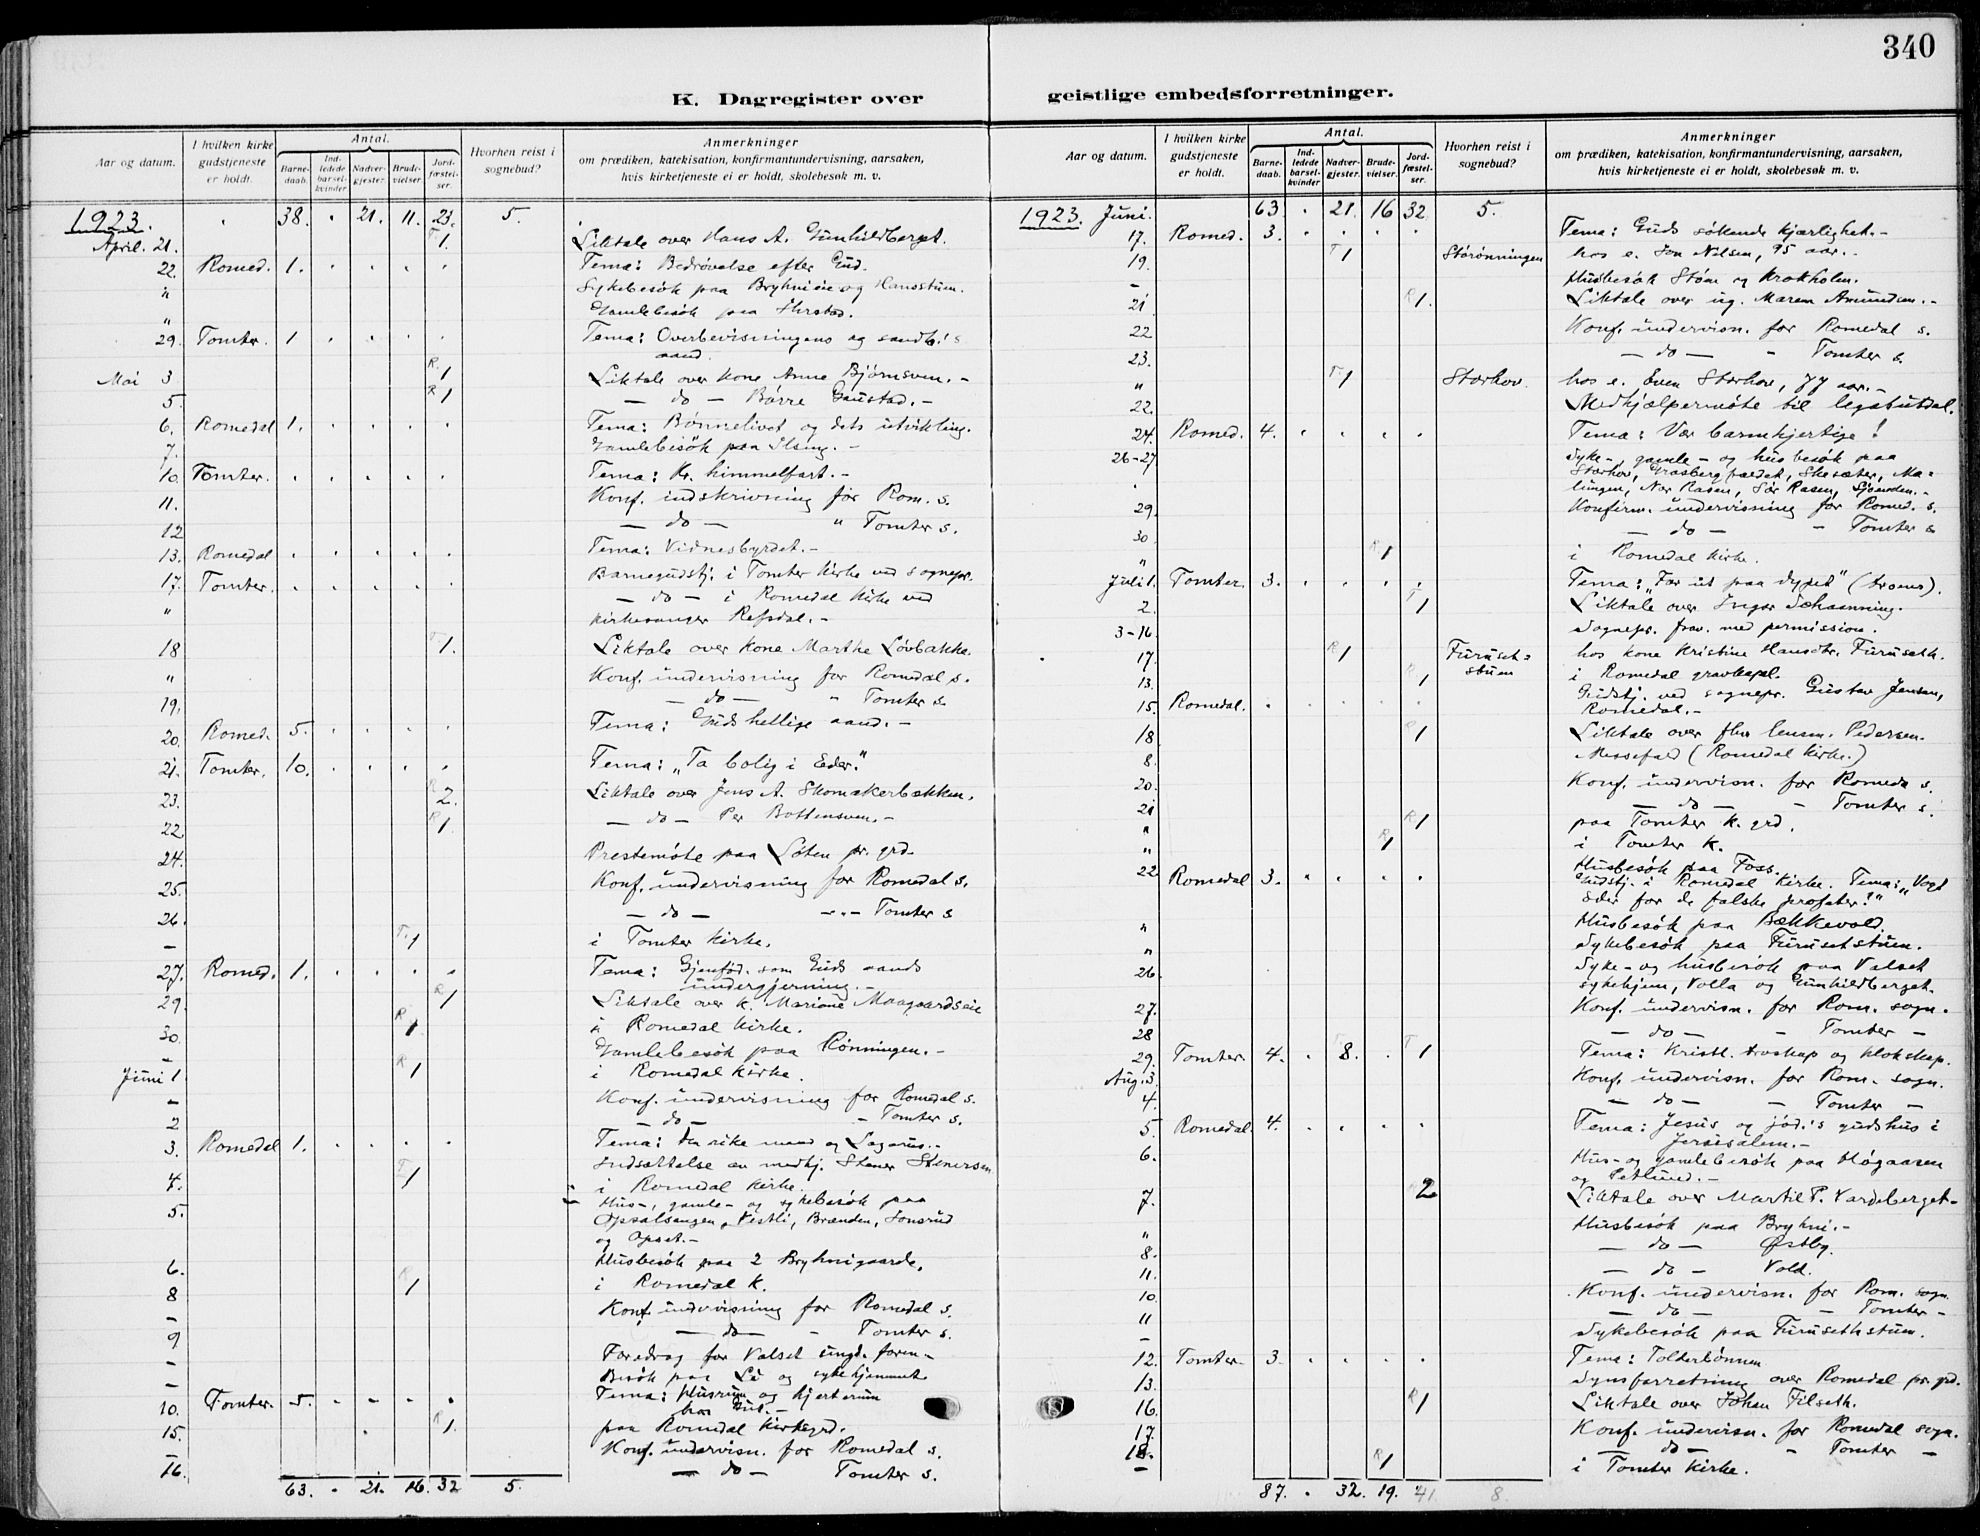 340
K. Dagregister over geistlige embedsforretninger.
Aar og datum.
I hvilken kirke gudstjeneste er holdt.
Antal.
Barnedaab.
Indledede barselkvinder
Nadvergjester.
Brudevielser.
Jordfæstelser.
Hvorhen reist i sognebud?
Anmerkninger
om prædiken, katekisation, konfirmantundervisning, aarsaken,
hvis kirketjeneste ei er holdt, skolebesøk m. v.
1923. 38. 21. 11. 21. 5.
April. 21. T 1. Liktale over Hans A. Gunhildberget.
22. Romed. 1. Tema: Bedrøvelse efter Gud.
" Sykebesøk paa Bryhnieie og Hansstuen.
" Gamlebesøk paa
29. Tomter. 1 Tema: Overbevisningens og sandh.'s
aand.
Mai 3 R. 1 Liktale over kone Anne Bjørnsven. -
5. R 1 - do - Børre Gaustad. -
6. Romedal 1. Tema: Bønnelivet og dets utvikling.
7. Gamlebesøk paa Ilseng. -
10. Tomter. Tema: Kr. himmelfart. -
11. Konf. indskrivning for Rom. s.
12 - do - " Tomter s.
13. Romedal Tema: Vidnesbyrdet. -
17. Tomter. Barnegudstj. i Tomter kirke ved sognepr.
" - do - i Romedal kirke ved
kirkesanger Refsdal. -
18 T 1. Liktale over kone Marthe Løvbakke.
" Konf. undervisning for Romedal s.
19. - do - " Tomter s.
20. Romed. 5. Tema: Guds hellige aand. -
21. Tomter. 10. Tema: „Ta bolig i Eder."
23. R 2. Liktale over Jens A. Skomakerbakken.
22 R 1. - do - Per Bottensven. -
24. Prestemøte paa Løten pr. grd.
25. Konf. undervisning for Romedal s.
26. - do - -"- Tomter s
- T. 1 i Tomter kirke.
27. Romed. 1. Tema: Gjenfød. som Guds aands
undergjerning. -
29. R 1 Liktale over k. Mariane Maagaardseie
30. R 1 i Romedal kirke.
- Gamlebesøk paa Rønningen. -
Juni 1. R 1 i Romedal kirke.
- Konf. undervisning for Romedal s.
2 - do - - Tomter s.
3. Romedal 1. Tema: Den rike mand og Lazarus. -
Indsættelse av medhj. Stener Stenersen
4. T 1 i Romedal kirke.
5. Hus-, gamle- og sykebesøk paa
Opsalsangen, Vestli, Brænden, Jonsrud
og Opset. -
6. Husbesøk paa 2 Bryhnigaarde.
8 R 1 i Romedal k.
- Konf. undervisning for Romedal s.
9 - do - - Tomter s.
- Foredrag for Valset ungd. foren -
- Besøk paa Li og sykehjemmet
10. Tomter. 5. Tema: Husrum og hjerterum
hos Gud. -
15. R 1. paa Romedal kirkegrd.
- Konf. undervisn. for Romedal s.
16. - do - Tomter s.
63. 21. 16. 32 5.
Aar og datum.
I hvilken kirke gudstjeneste er holdt.
Antal.
Barnedaab.
Indledede barselkvinder
Nadvergjester.
Brudevielser.
Jordfæstelser.
Hvorhen reist i sognebud?
Anmerkninger
om prædiken, katekisation, konfirmantundervisning, aarsaken,
hvis kirketjeneste ei er holdt, skolebesøk m. v.
1923. Juni. 63. 21. 16 32. 5.
17. Romed. 3. Tema: Guds søkende kjærlighet. -
19. T 1 Størønningen hos e. Jon Nilsen, 95 aar. -
- Husbesøk Støen og Krokholen.
21 R 1. Liktale over ug. Maren Amundsen. -
22 Konf. undervisn. for Romedal s.
23. - do - - Tomter s.
" T 1 Storhov. hos e. Even Storhov, 77 aar. -
22. Medhjælpermøte til legatutdel.
24. Romed. 4. Tema: Vær barmhjertige!
26-27 Syke-, gamle- og husbesøk paa
Storhov, Graabergfældet, Skesæter, Ma-
lingen, Nor Rasen, Sør Rasen, Sjøenden. -
29. Konfirm. undervisning for Romed. s.
30 - do - - Tomter s
" R 1 i Romedal kirke.
Juli 1. Tomter. 3. Tema: „Far ut paa dypet" (troens).
2. T 1 Liktale over Inger Schaanning.
3-16 Sognepr. frav. med permission.
17. R 1 Furusetstuen hos kone Kristine Hansdtr. Furuseth.
13. R 1 i Romedal gravkapel.
15. Romedal. Gudstj. ved sognepr. Gustav Jensen,
Romedal. -
18 R 1 Liktale over fhv. lensm. Pedersen.
8. Messefald (Romedal kirke.)
20. Konf. undervisn. for Romeda s.
21 - do - - Tomter s.
" R 1 paa Tomter k. grd.
" R 1 i Tomter k.
Husbesøk paa Foss.
22 Romedal 3. Gudstj. i Romedal kirke. Tema: „Vogt
eder for de falske profeter!"
" Husbesøk paa Bækkevold.
" Sykebesøk paa Furusetstuen.
26. Syke- og husbesøk paa Valset
sykehjem, Volla og Gunhildberget.
27. Konf. undervisn. for Rom. sogn.
28 - do - - Tomter -
29. Tomter 4. T 8. T 1 Tema: Kristl. troskap og klokskap.
Aug. 3. Konf. undervisn. for Rom. sogn.
4. - do - - Tomter -
5. Romedal. 4. Tema: Jesus og jød.'s gudshus i
Jerusalem. -
6. Hus- og gamlebesøk paa Høgaasen
og Petlund. -
7. 2 Liktale over Martil P. Vardeberget -
" Husbesøk paa Bryhni. -
8. - do - Østby.
11. - do - Vold.
10. Konf. undervisn. for Rom. sogn
11 - do - - Tomter -
- Sykebesøk paa Furusethstuen.
12. Tomter. 3. Tema: Tolderbønnen
13. Synsforretning over Romedal pr. grd.
16. R 1 Liktale over Johan Filseth.
17. Konf. undervisn. for Romedal sogn.
18. - do - - Tomter -
- R 1 i Tomter kirke.
87. 32. 19. 41. 8.